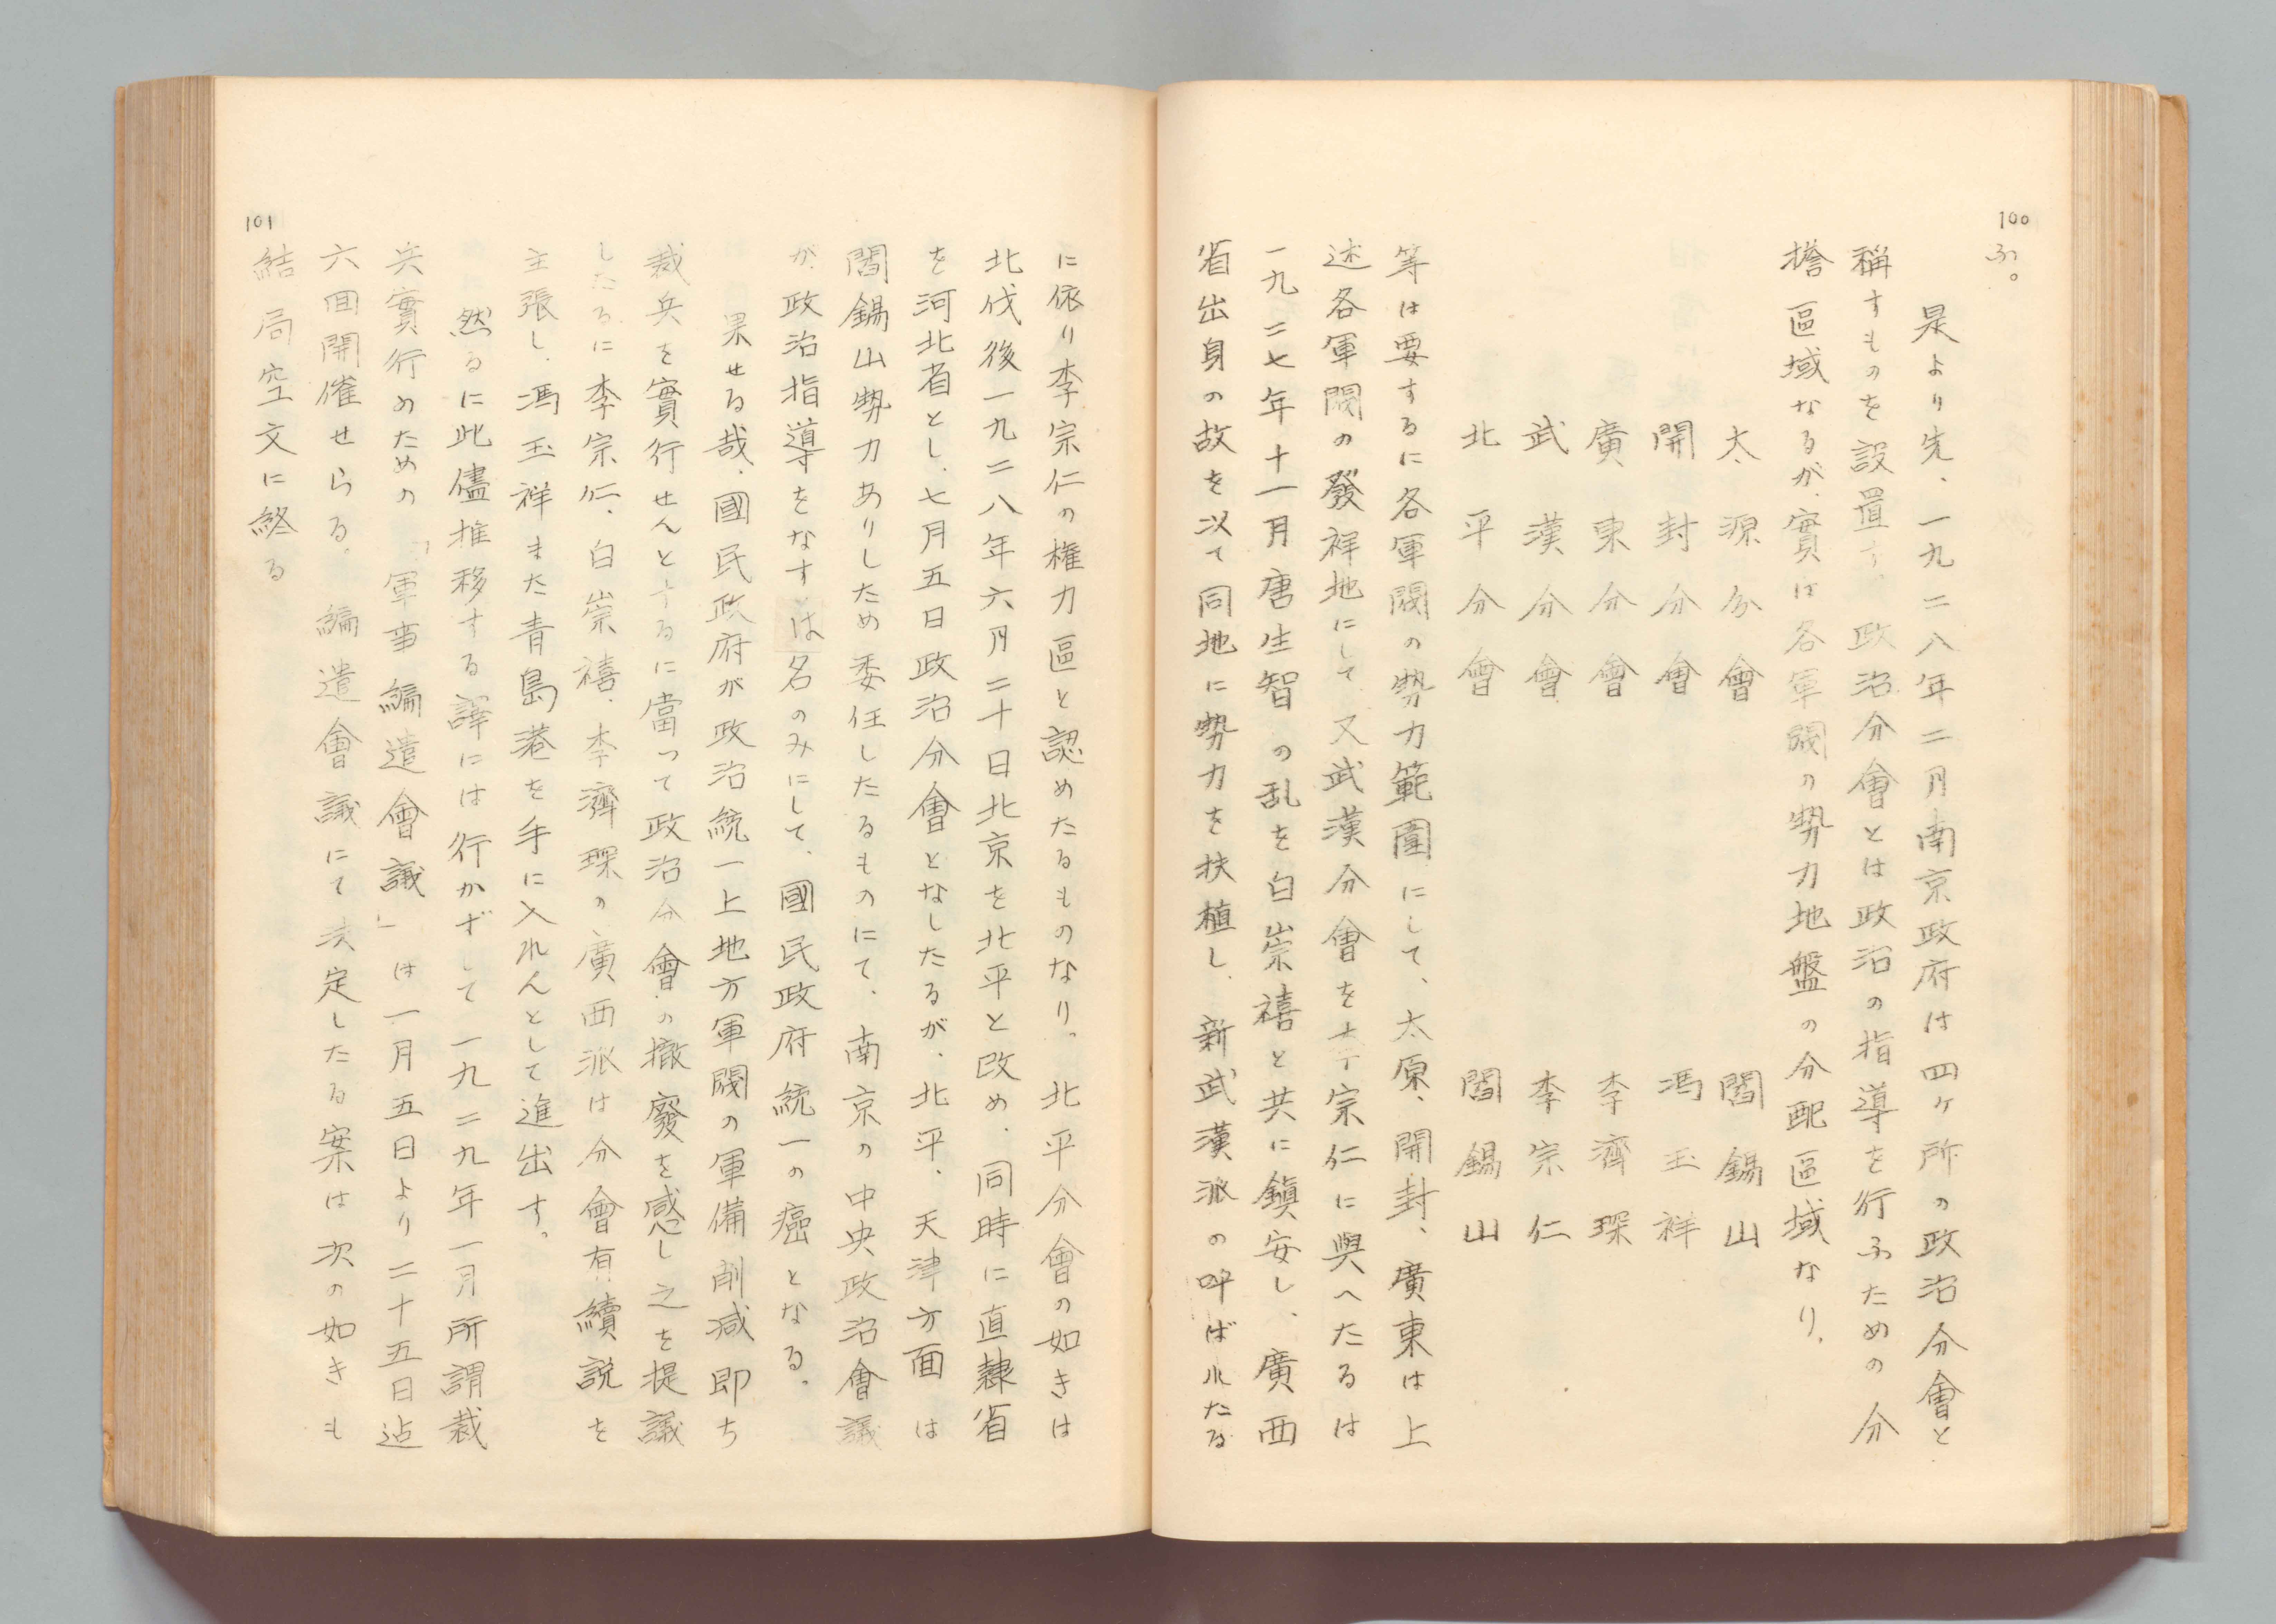 100
ふ。
是より先、一九二八年二月南京政府は四ヶ所の政治分會と
稱すものを設置す、政治分會とは政治の指導を行ふための分
擔區域なるが、實は各軍閥の勢力地盤の分配區域なり、
太源分會 閻錫山
開封分會 馮玉祥
廣東分會 李濟琛
武漢分會 李宗仁
北平分會 閻錫山
等は要するに各軍閥の勢力範圍にして、太原、開封、廣東は上
述各軍閥の發祥地にして又武漢分會を李宗仁に與へたるは
一九二七年十一月唐生智の乱を白崇禧と共に鎭安し、廣西
省出身の故を以て同地に勢力を扶植し、新武漢派の呼ばれたる
に依り李宗仁の権力區と認めたるものなり。北平分會の如きは
北伐後一九二八年六月二十日北京を北平と改め、同時に直隸省
を河北省とし、七月五日政治分會となしたるが、北平、天津方面は
閻錫山勢力ありしため委任したるものにて、南京の中央政治會議
が、政治指導をなすは名のみにして、國民政府統一の癌となる。
果せる哉、國民政府が政治統一上地方軍閥の軍備削減即ち
裁兵を實行せんとするに當って政治分會の撤廢を感し之を提議
したるに李宗仁、白崇禧、李濟琛の廣西派は分會有續説を
主張し、馮玉祥また青島港を手に入れんとして進出す。
然るに此儘推移する譯には行かずして一九二九年一月所謂裁
兵實行のための「軍事編遣會議」は一月五日より二十五日迠
六回開催せらる。編遣會議にて決定したる案は次の如きも
結局空文に終る
101